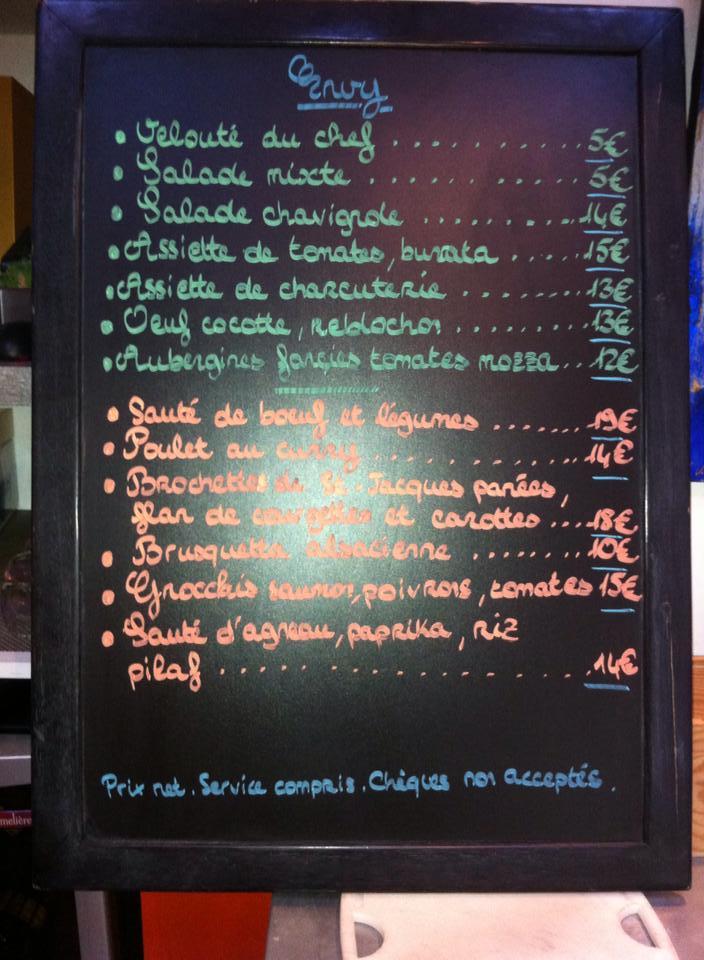 Envy
• Velouté du chef .......... 5€
• Salade mixte .......... 5€
• Salade chavignole ........ 14€
• Assiette de tomates, burrata ..... 15€
• Assiette de charcuterie ........ 13€
• Oeuf cocotte, reblochon ......... 13€
• Aubergines farçies tomates mozza... 12€
• Sauté de boeuf et légumes ....... 19€
• Poulet au curry .......... 14€
• Brochettes de St-Jacques panées,
flan de courgettes et carottes .... 18€
• Brusquetta alsacienne ........ 10€
• Gnocchis saumon, poivrons, tomates 15€
• Sauté d'agneau, paprika, riz
pilaf .................. 14€
Prix net. Service compris. Chèques non acceptés.
melière